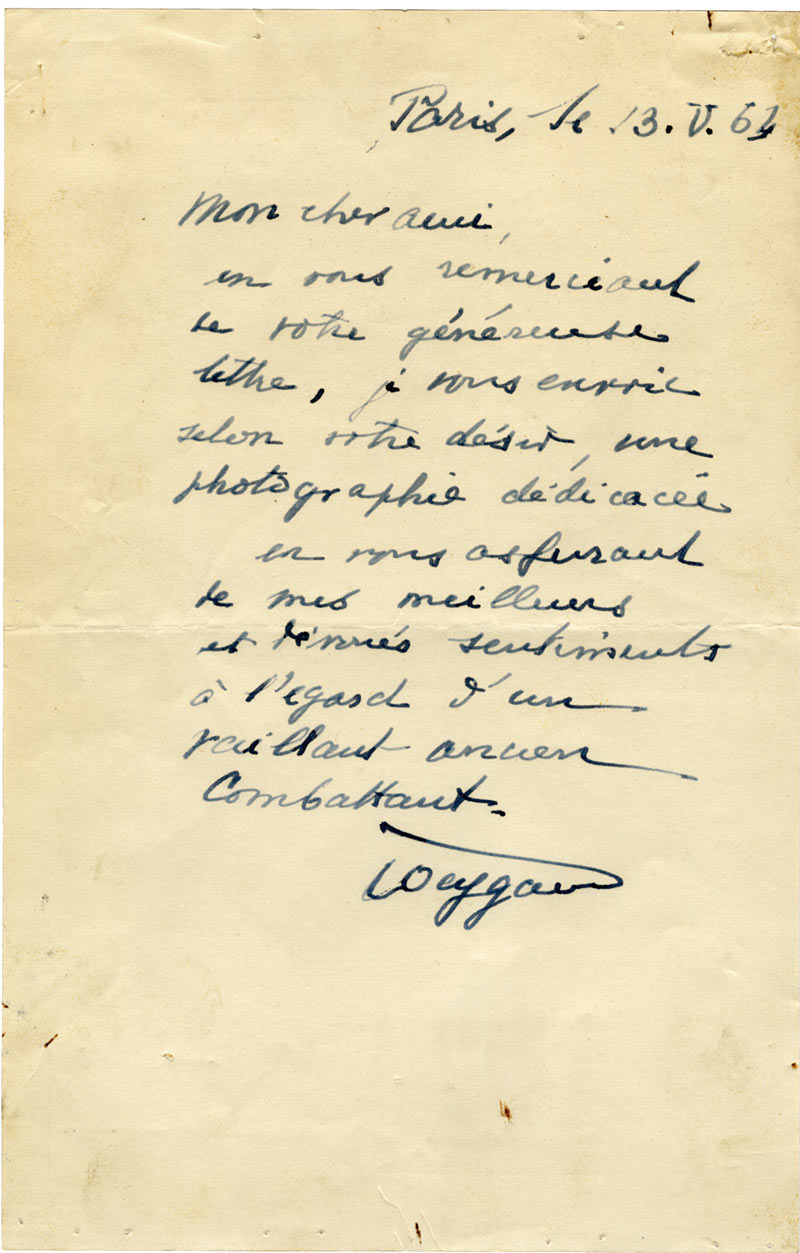 Paris, le 13.V.64
Mon cher ami,
en vous remerciant
de votre généreuse
lettre, je vous envoie
selon votre désir, une
photographie dédicacée
en vous assurant
de mes meilleurs
et dévoués sentiments
à l'egard d'un
vaillant ancien
Combattant.
Weygand